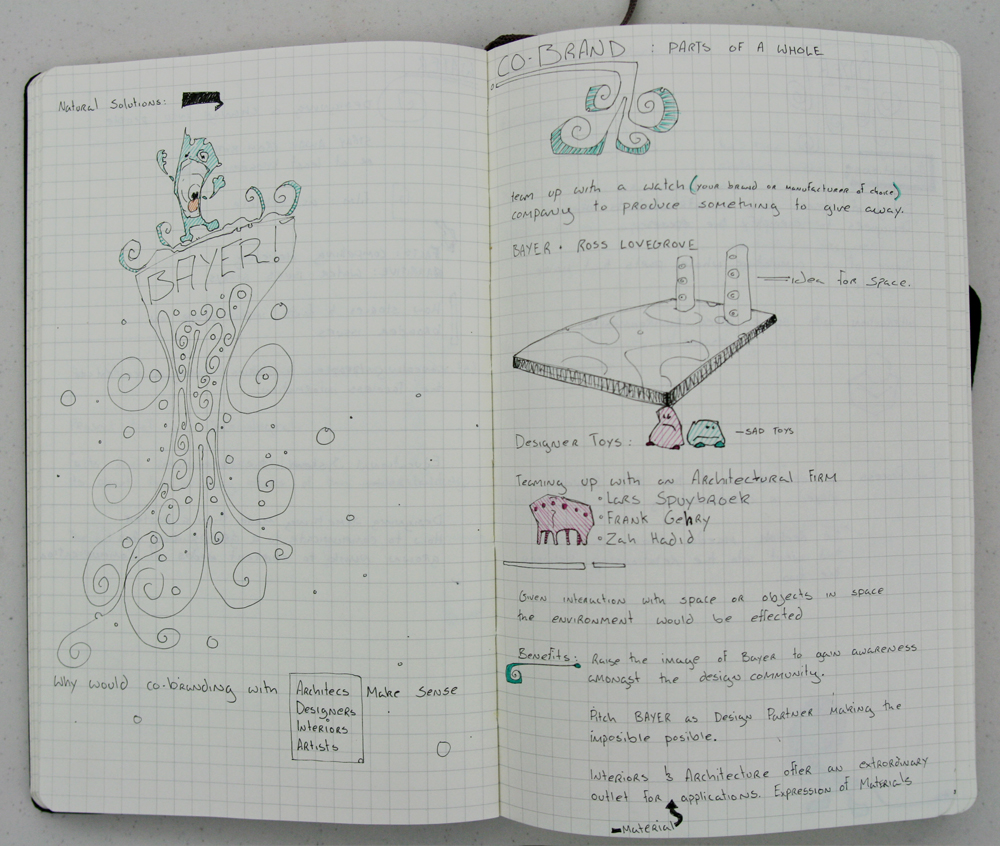 Natural Solutions:
BAYER!
Why would co-branding with Architecs Make Sense
Designers
Interiors
Artists
CO-BRAND : PARTS OF A WHOLE
team up with a watch (your brand or manufacturer of choice)
company to produce something to give away.
BAYER • ROSS LOVEGROVE
idea for space.
Designer Toys:
- SAD TOYS
Teaming up with an Architectural Firm
• Lars Spuybroek
• Frank Gehry
• Zah Hadid
Given interaction with space or objects in space
the environment would be effected
Benefits: Raise the image of Bayer to gain awareness
amongst the design community.
Pitch BAYER as Design Partner making the
imposible posible.
Interiors & Architecture offer an extrordinary
outlet for applications. Expression of Materials
Material